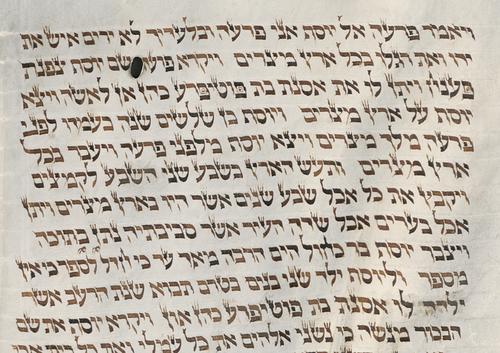 ויאמר פרעה אל יוסף אני פרעה ובלעדיך לא ירים איש את
ידו ואת רגלו בכל ארץ מצרים ויקרא פרעה שם יוסף צפנת
פענח ויתן לו את אסנת בת פוטי פרע כהן אן לאשה ויצא
יוסף על ארץ מצרים ויוסף בן שלשים שנה בעמדו לפני
פרעה מלך מצרים ויצא יוסף מלפני פרעה ויעבר בכל
ארץ מצרים ותעש הארץ בשבע שני השבע לקמצים
ויקבץ את כל אכל שבע שנים אשר היו בארץ מצרים ויתן
אכל בערים אכל שדה העיר אשר סביבתיה נתן בתוכה
ויצבר יוסף בר כחול הים הרבה מאד עד כי חדל לספר כי אין
מספר וליוסף ילד שני בנים בטרם תבוא שנת הרעב אשר
ילדה לו אסנת בת פוטי פרע כהן און ויקרא יוסף את שם
הבכור מנשה כי נשני אלהים את כל עמלי ואת כל